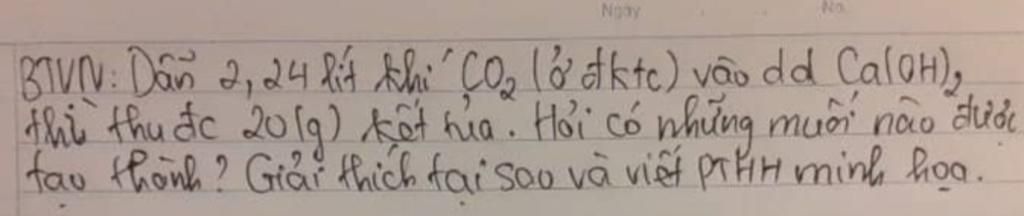 Ngày No.
BTVN: Dẫn 2,24 lít khí CO₂ (ở đktc) vào dd Ca(OH)₂
thì thu đc 20(g) kết tủa. Hỏi có những muối nào được
tạo thành? Giải thích tại sao và viết PTHH minh họa.